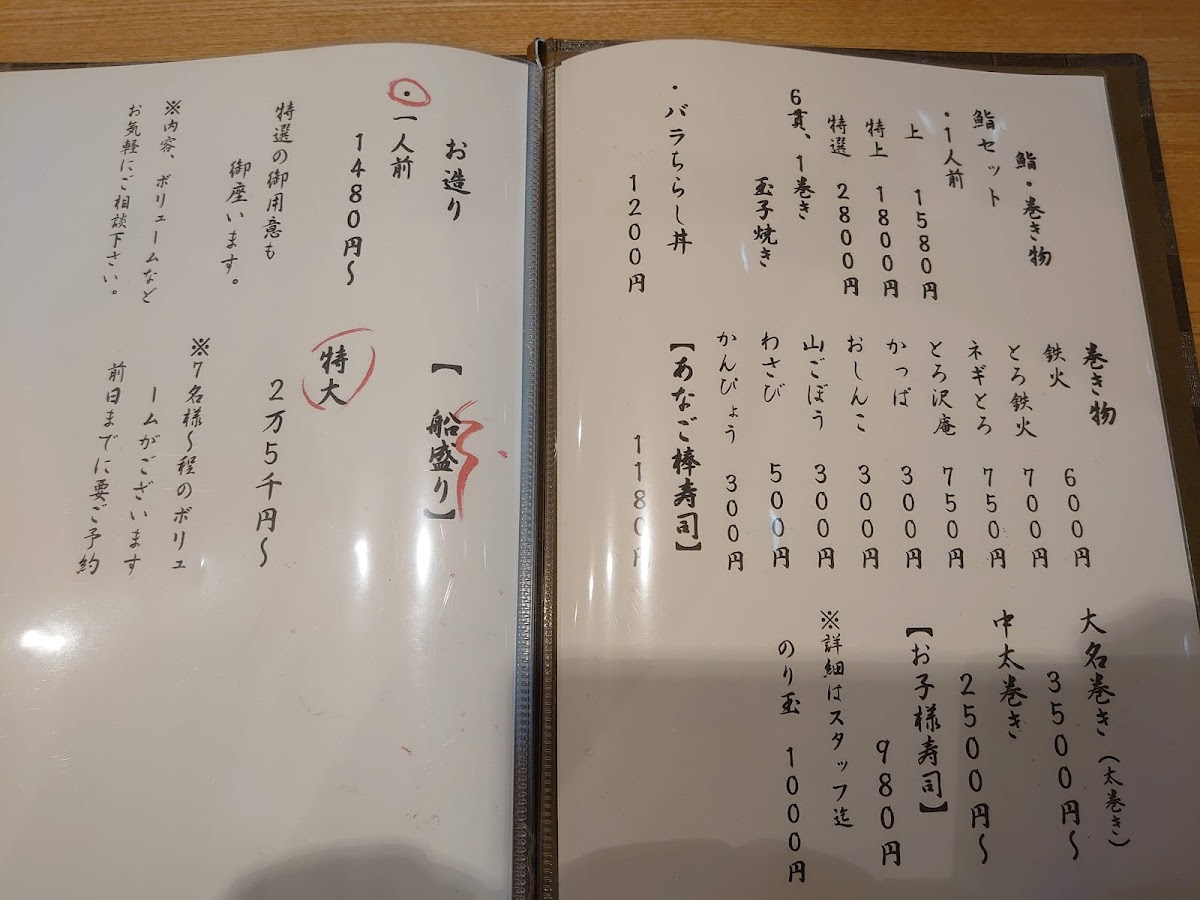 鮨・巻き物
鮨セット
・1人前
上 1580円
特上 1800円
特選 2800円
6貫、1巻き
玉子焼き
・バラちらし丼
1200円
巻き物
鉄火 600円
とろ鉄火 700円
ネギとろ 750円
とろ沢庵 750円
かっぱ 300円
おしんこ 300円
山ごぼう 300円
わさび 500円
かんぴょう 300円
【あなご棒寿司】
1180円
大名巻き(太巻き)
3500円~
中太巻き
2500円~
【お子様寿司】
980円
※詳細はスタッフ迄
のり玉 1000円
お造り
・一人前
1480円~
特選の御用意も
御座います。
※内容、ボリュームなど
お気軽にご相談下さい。
【船盛り】
特大
2万5千円~
※7名様~程のボリュ
ームがございます
前日までに要ご予約